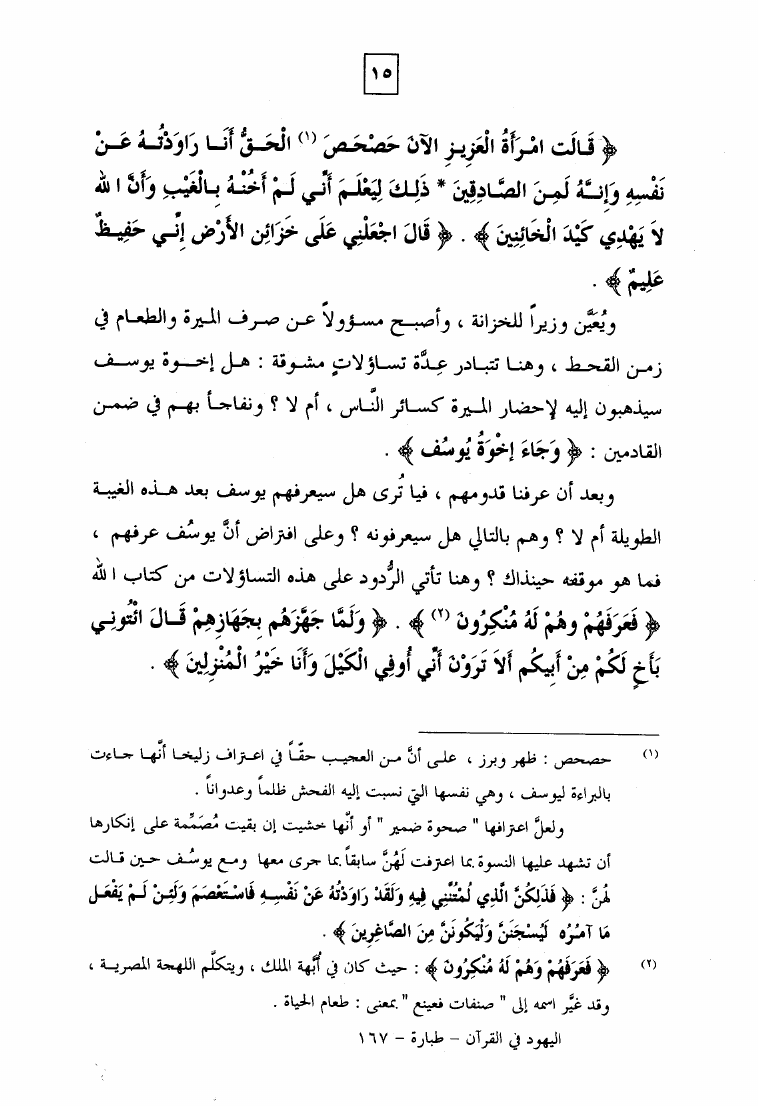 ١٥
﴿ قَالَت امْرَأَةُ الْعَزِيزِ الآنَ حَصْحَصَ (١) الْحَقُّ أَنَا رَاوَدْتُهُ عَنْ
نَفْسِهِ وَإِنَّهُ لَمِنَ الصَّادِقِينَ * ذَلِكَ لِيَعْلَمَ أَنِّي لَمْ أَخُنْهُ بِالْغَيْبِ وَأَنَّ الله
لاَ يَهْدِي كَيْدَ الْخَائِنِينَ ﴾ . ﴿ قَالَ اجْعَلْنِي عَلَى خَزَائِنِ الأَرْضِ إِنِّي حَفِيظٌ
عَلِيمٌ ﴾ .
ويُعَيَّن وزيراً للخزانة ، وأصبح مسؤولاً عن صرف الميرة والطعام في
زمن القحط ، وهنا تتبادر عِدَّة تساؤلاتٍ مشوقة : هل إخوة يوسف
سيذهبون إليه لإحضار الميرة كسائر النَّاس ، أم لا ؟ ونفاجأ بهم في ضمن
القادمين : ﴿ وَجَاءَ إِخْوَةُ يُوسُف ﴾ .
وبعد أن عرفنا قدومهم ، فيا تُرى هل سيعرفهم يوسف بعد هذه الغيبة
الطويلة أم لا ؟ وهم بالتالي هل سيعرفونه ؟ وعلى افتراض أنَّ يوسُف عرفهم ،
فما هو موقفه حينذاك ؟ وهنا تأتي الرُّدود على هذه التساؤلات من كتاب الله
﴿ فَعَرَفَهُمْ وهُمْ لَهُ مُنْكِرُونَ (٢) ﴾ . ﴿ وَلَمَّا جَهَّزَهُم بِجَهَازِهِمْ قَالَ ائْتُونِي
بَأَخٍ لَكُمْ مِنْ أَبِيكُم أَلاَ تَرَوْنَ أَنِّي أُوفِي الْكَيْلَ وَأَنا خَيْرُ الْمُنْزِلِينَ ﴾ .
(١) حصحص : ظهر وبرز ، على أنَّ من العجيب حقّاً في اعتراف زليخا أنَّها جاءت
بالبراءة ليوسف ، وهي نفسها التي نسبت إليه الفحش ظلماً وعدواناً .
ولعلَّ اعترافها " صحوة ضمير " أو أنَّها خشيت إن بقيت مُصَمِّمة على إنكارها
أن تشهد عليها النسوة بما اعترفت لَهُنَّ سابقاً بما جرى معها ومع يوسُف حين قالت
لهنَّ : ﴿ فَذَلِكُنَّ الَّذِي لُمْتُنَّنِي فِيهِ وَلَقَدْ رَاوَدْتُهُ عَنْ نَفْسِهِ فَاسْتَعْصَمَ وَلَئِنْ لَمْ يَفْعَل
مَا آمُرُه لَيُسْجَنَنَّ وَلَيَكُونَنَّ مِنَ الصَّاغِرِينَ ﴾ .
(٢) ﴿ فَعَرَفَهُمْ وَهُمْ لَهُ مُنْكِرُونَ ﴾ : حيث كان في أُبَّهة الملك ، ويتكلَّم اللهجة المصرية ،
وقد غيَّر اسمه إلى " صنفات فعينع " بمعنى : طعام الحياة .
اليهود في القرآن – طبارة – ١٦٧